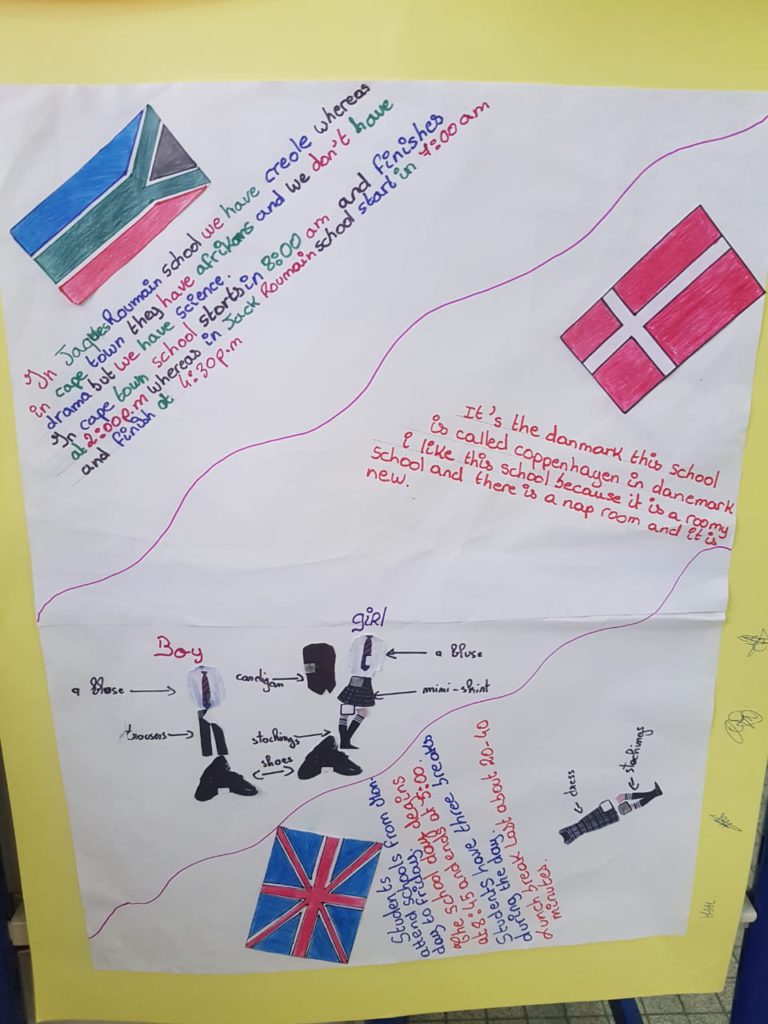 In Jacques Roumain school we have creole whereas
in cape town they have afrikans and we don't have
drama but we have science.
In cape town school starts in 8:00 am and finishes
at 2:00 p.m whereas in Jack Roumain school start in 7:00 am
and finish at 4:30 p.m
It's the danmark this school
is called coppenhagen in danemark
i like this school because it is a roomy
school and there is a nap room and it is
new.
Boy
girl
a bluse
cardigan
a bluse
mini-skirt
trousers
stockings
shoes
dress
stockings
Students from Mon-
attend schools
day to friday
the school day begins
at 8:45 and ends at 5:00.
Students have three breaks
during the day.
Lunch break last about 20-40
minutes.